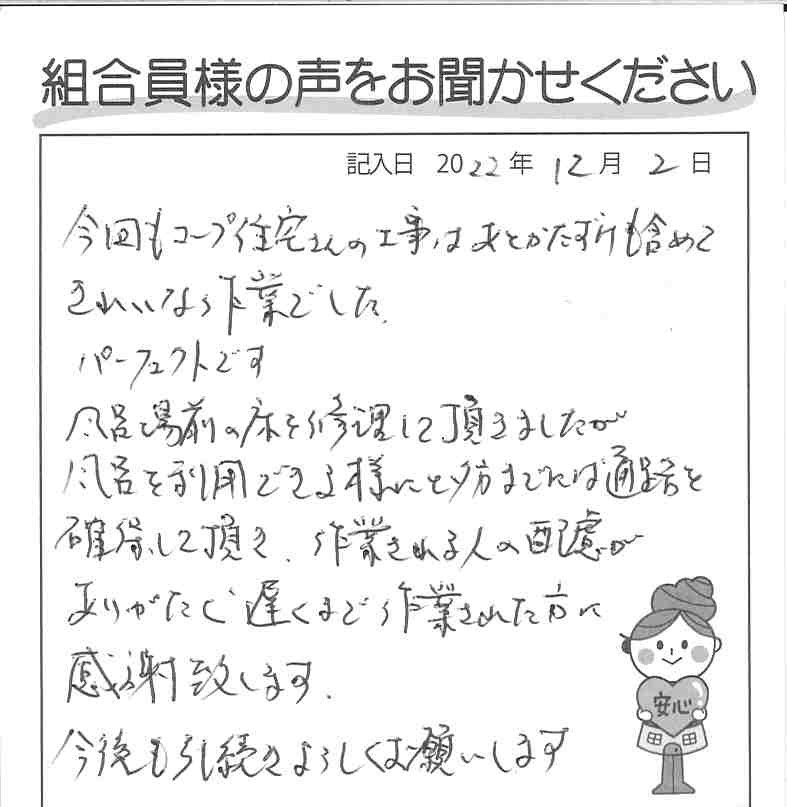 組合員様の声をお聞かせください
記入日 2022年 12月 2日
今回もコープ住宅さんの工事はあとかたずけも含めて
きれいな作業でした.
パーフェクトです
風呂場前の床を修理して頂きましたが
風呂を利用できる様にと夕方までには通路を
確保して頂き、作業される人の配慮が
ありがたく遅くまで作業された方に
感謝致します.
今後も引続きよろしくお願いします
安心